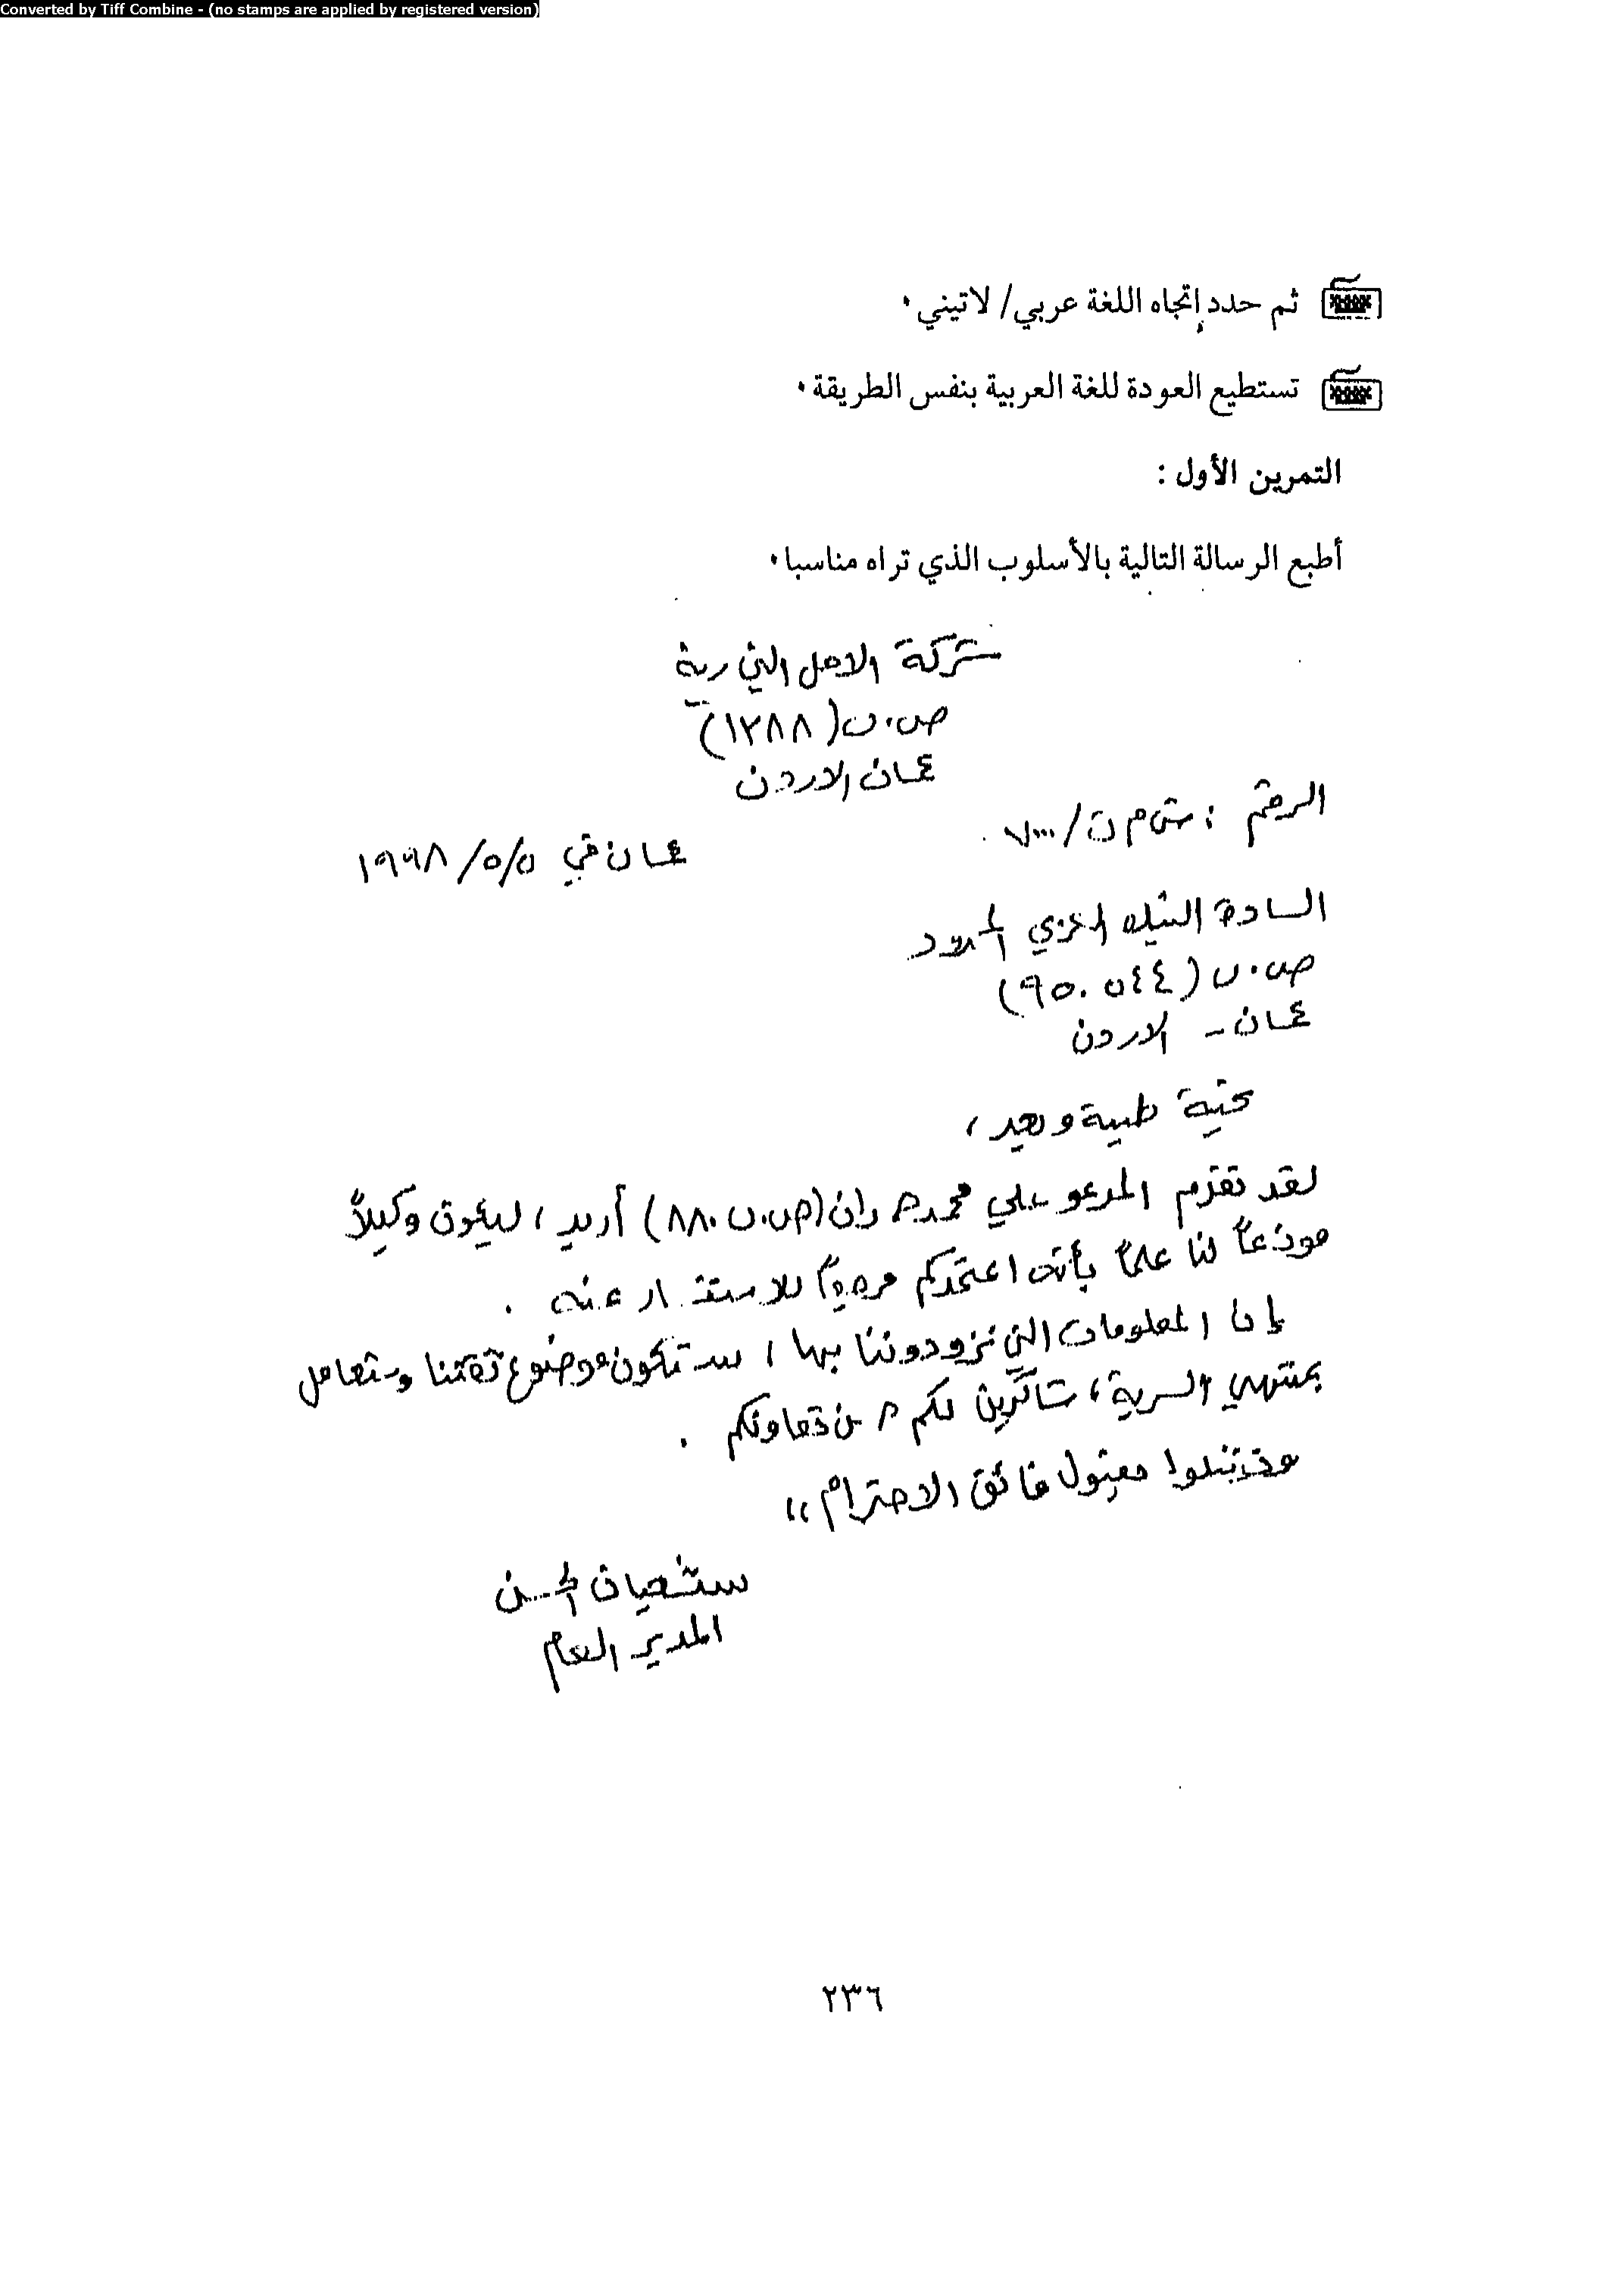 Converted by Tiff Combine - (no stamps are applied by registered version)
ثم حدد إتجاه اللغة عربي/ لاتيني .
تستطيع العودة للغة العربية بنفس الطريقة .
التمرين الأول :
أطبع الرسالة التالية بالأسلوب الذي تراه مناسبا .
شركة الامل التجارية
ص.ب (١٢٨٨)
عمان الاردن
الرقم : ش م ت/٧٠٠٠
عمان في ١٩٩٨/٥/٥
السادة البنك المركزي المحدود
ص.ب (٩٥٠٥٤٤)
عمان - الاردن
تحية طيبة وبعد ،
لقد تقدم المدعو علي محمد (ص.ب ٨٨٠) أربد ، ليكون وكيلاً
موزعاً لنا علماً بأنه اعتمدكم للاستفسار عنه .
إن المعلومات التي تزودوننا بها ، ستكون موضوع ثقتنا وستعامل
بمنتهى السرية ، شاكرين لكم حسن تعاونكم .
وتفضلوا بقبول فائق الاحترام ،،
الحسن
المدير العام
٢٣٦